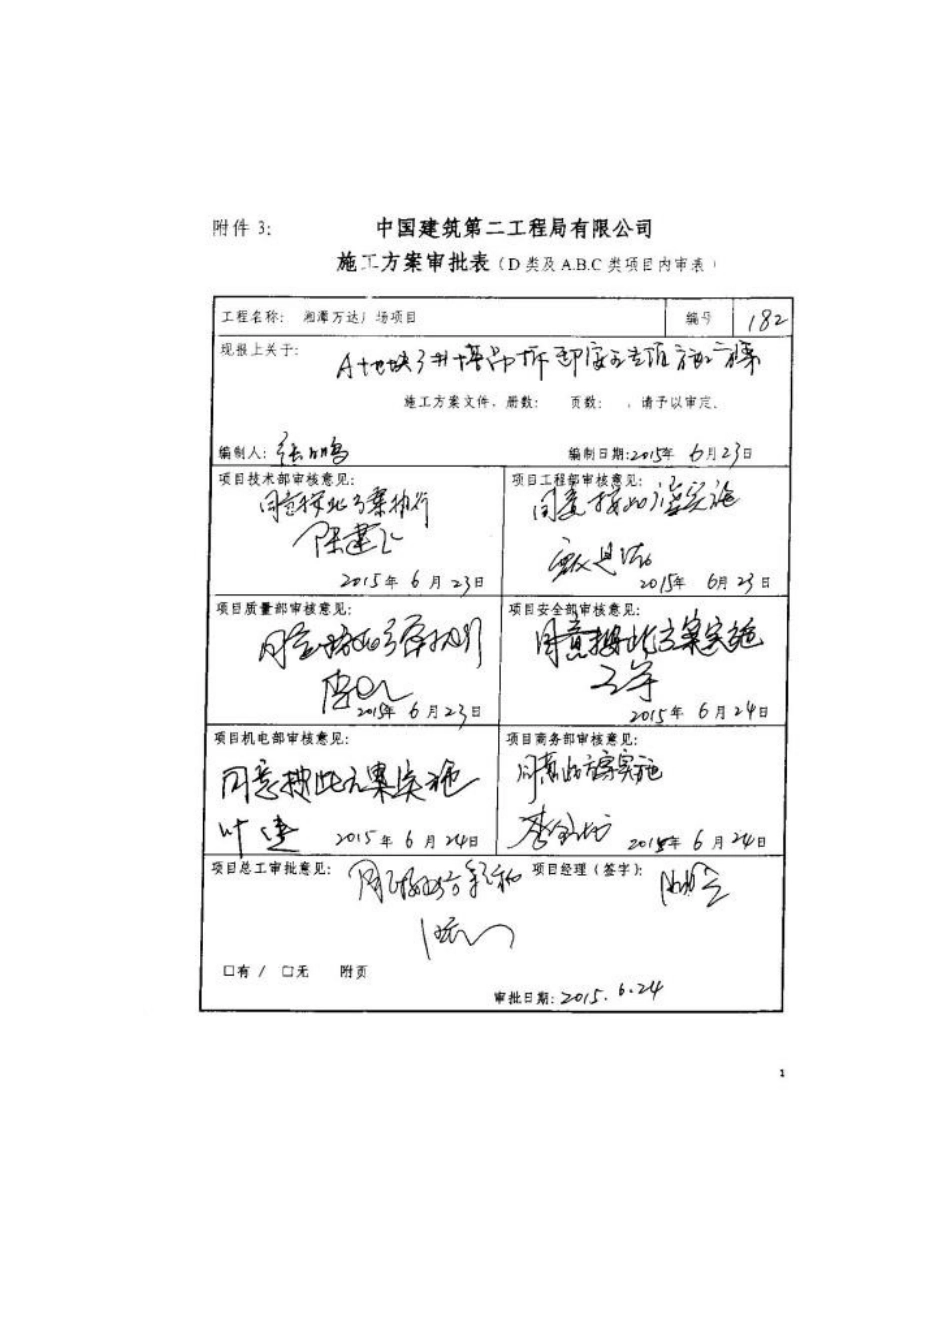 附件 3:
中国建筑第二工程局有限公司
施工方案审批表（D 类及 A.B.C 类项目内审表）
工程名称: 湘潭万达广场项目 编号 182
现报上关于:
A地块3#塔吊拆卸安全专项施工方案
施工方案文件、册数: 页数: ，请予以审定。
编制人: 张鹏 编制日期:2015年 6月23日
项目技术部审核意见: 项目工程部审核意见:
同意按此方案执行 同意按此方案实施
2015年 6月23日 2015年 6月23日
项目质量部审核意见: 项目安全部审核意见:
同意按此方案执行 同意按此方案实施
2015年 6月23日 2015年 6月24日
项目机电部审核意见: 项目商务部审核意见:
同意按此方案实施 同意此方案实施
叶建 2015年 6月24日 2015年 6月24日
项目总工审批意见: 项目经理（签字）:
□有 / □无 附页
审批日期: 2015. 6.24
1